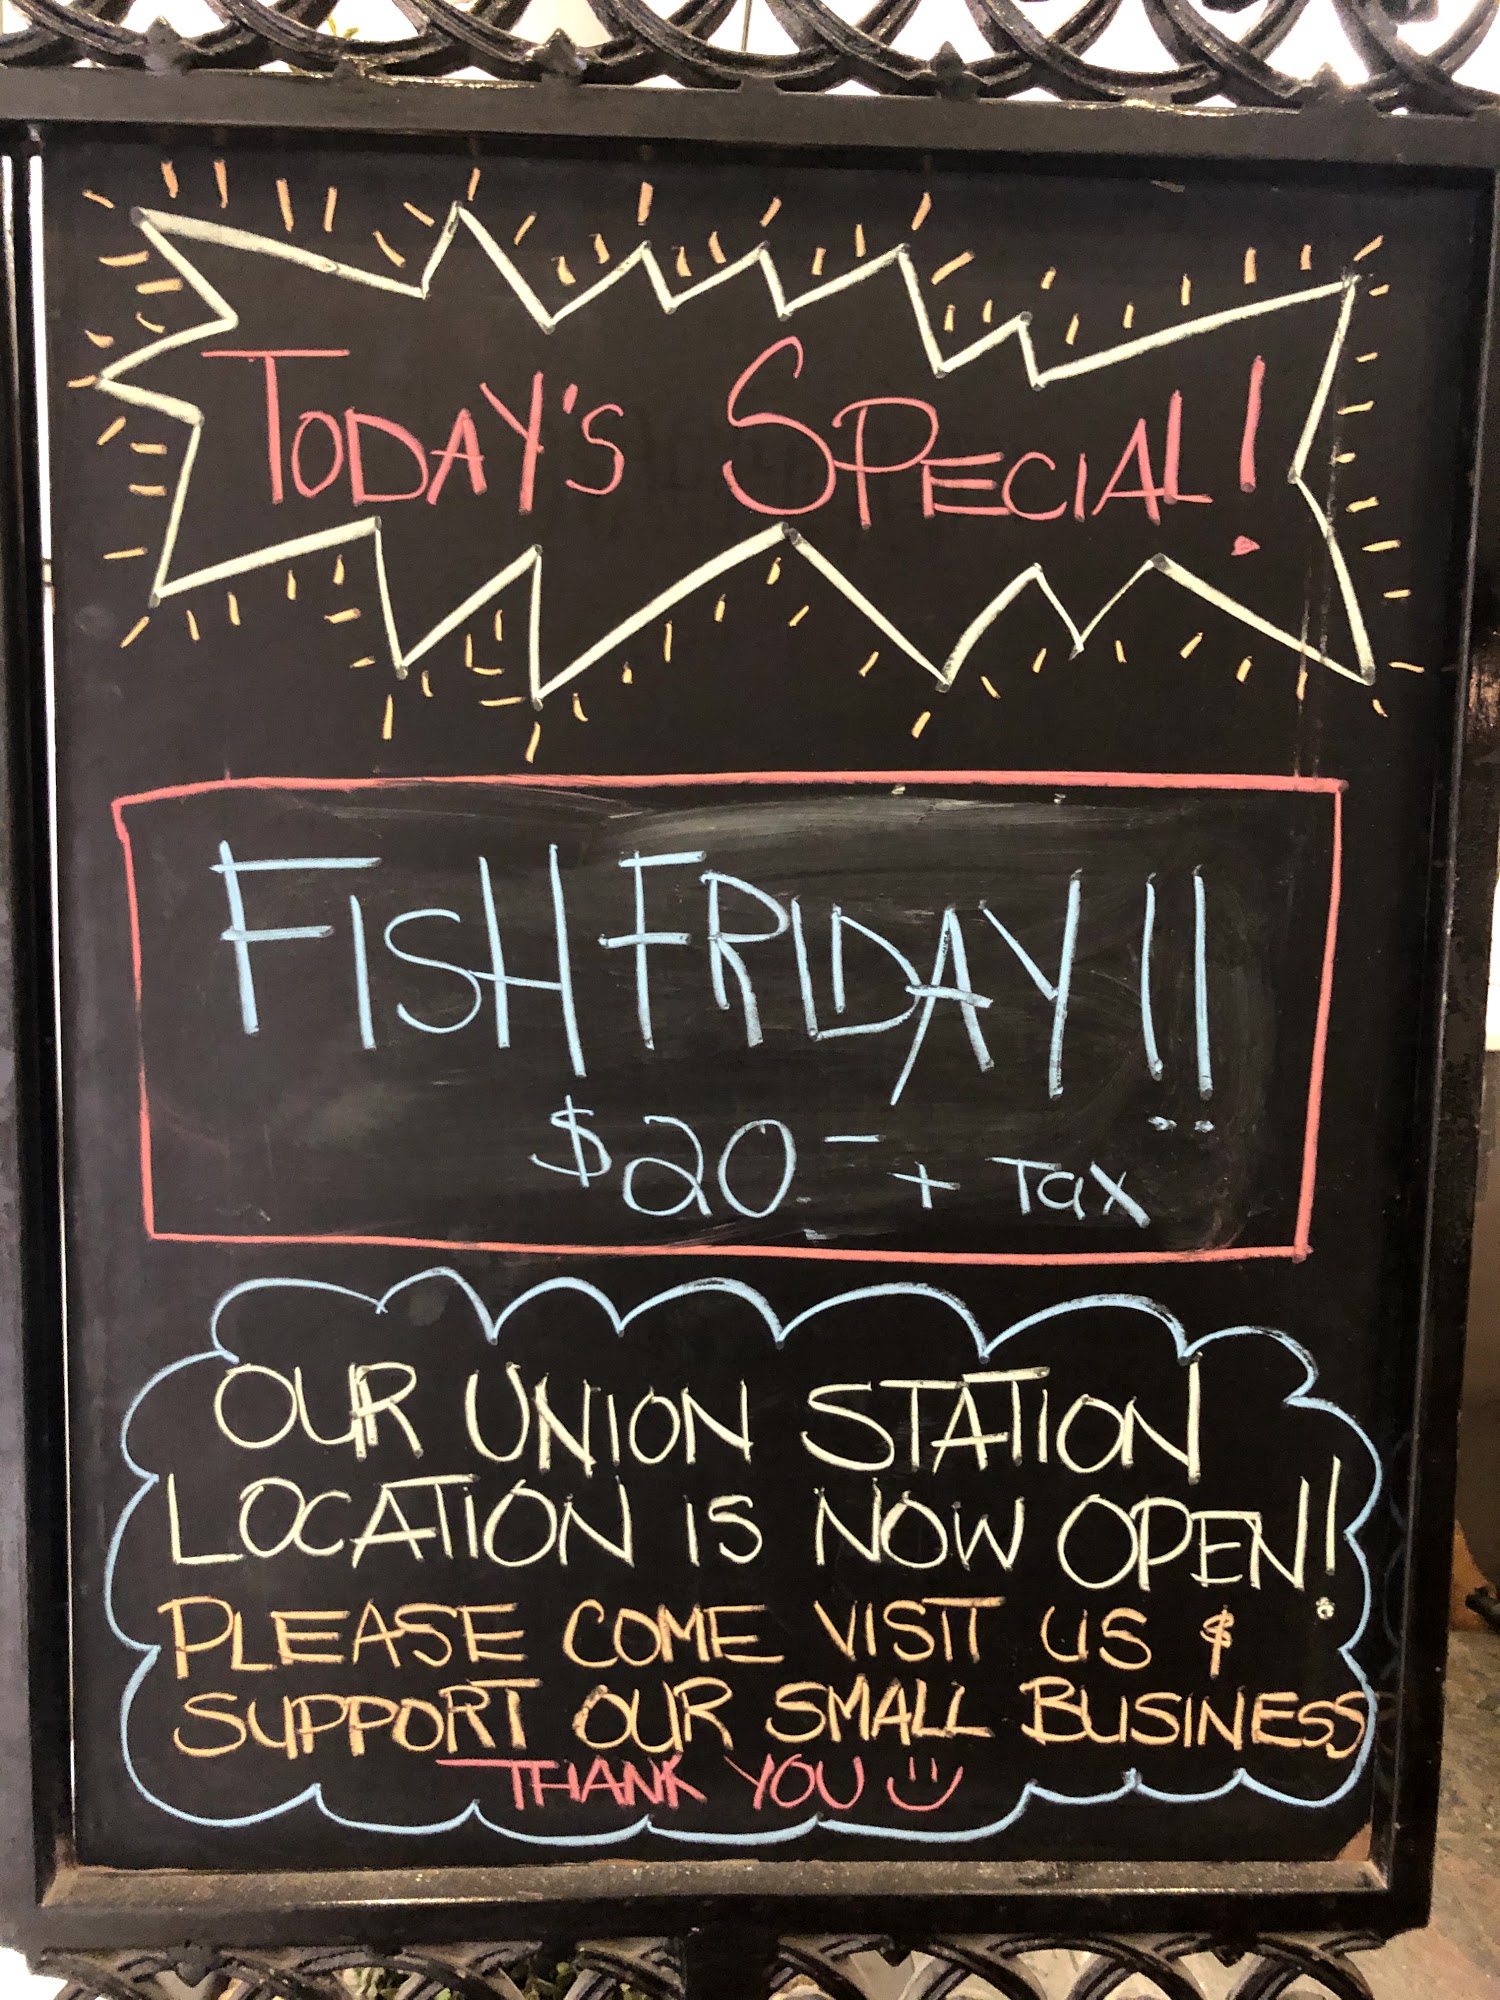 TODAY'S SPECIAL!
FISH FRIDAY!!
$20.- + Tax
OUR UNION STATION
LOCATION IS NOW OPEN!
PLEASE COME VISIT US &
SUPPORT OUR SMALL BUSINESS
THANK YOU